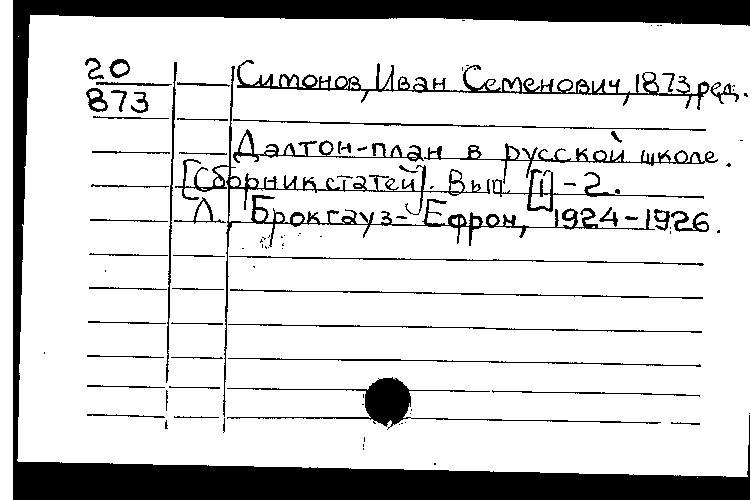 20
873
Симонов, Иван Семенович, 1873, ред.
Далтон-план в русской школе.
[Сборник статей]. Вып. [1]-2.
Л., Брокгауз-Ефрон, 1924-1926.